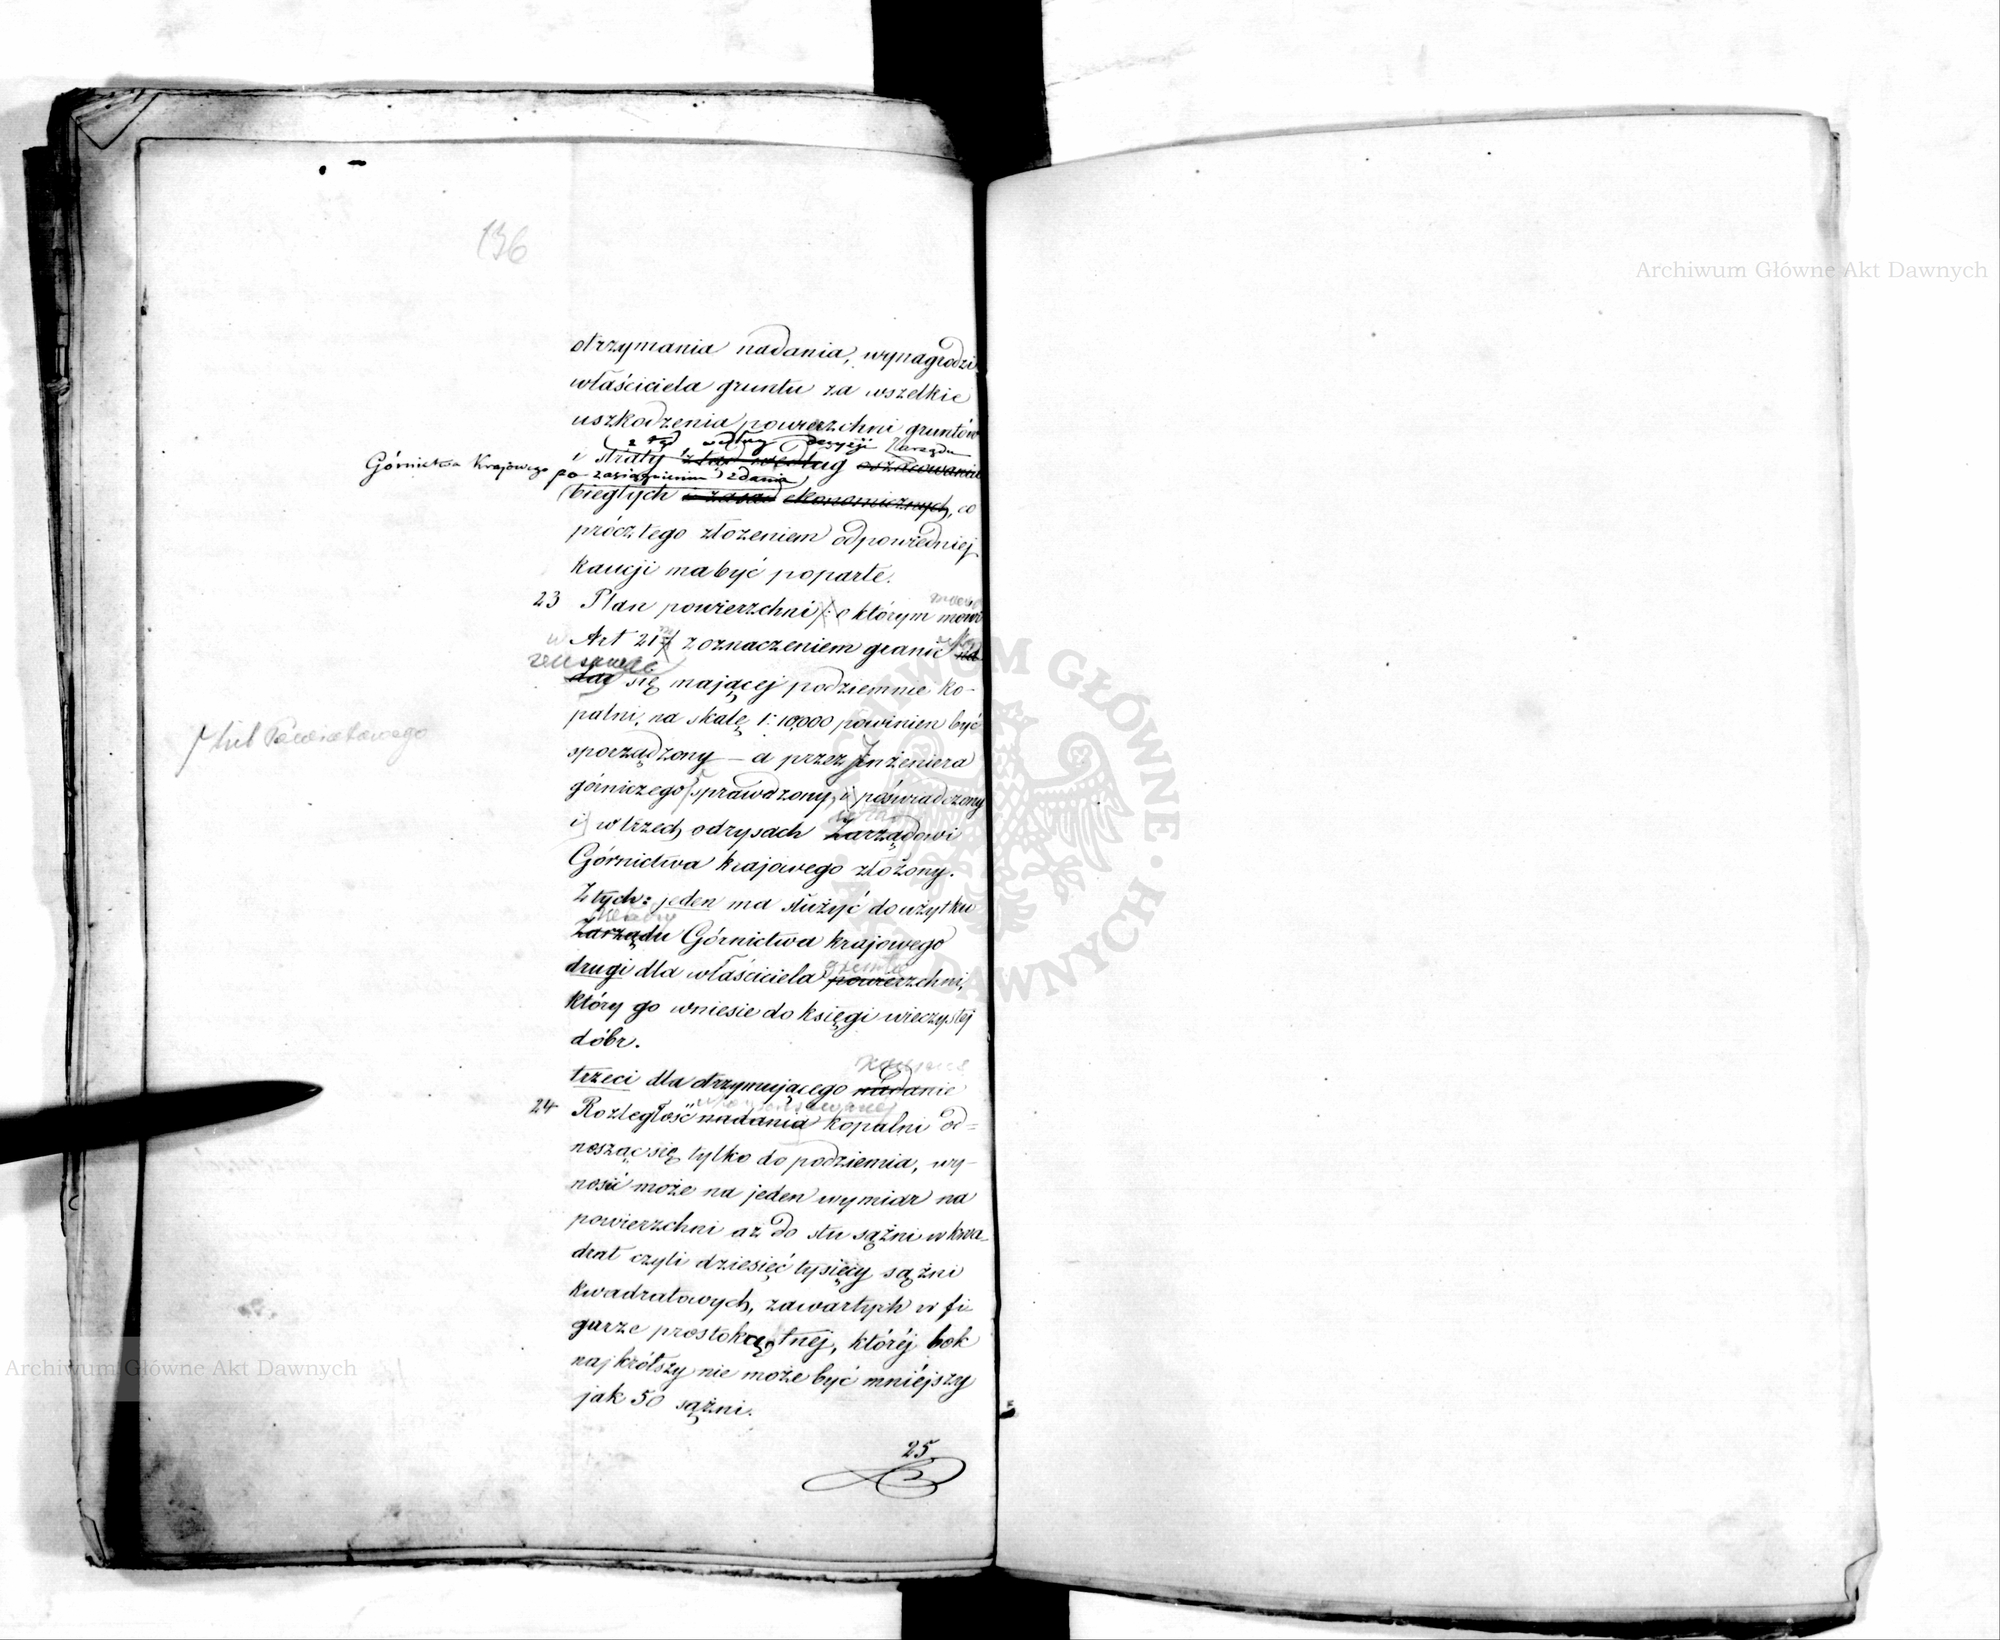 136
otrzymania nadania, wynagrodzi
właściciela gruntu za wszelkie
uszkodzenia powierzchni gruntów
z tąd według decyzji Zarządu
i straty z tąd według oszacowania
Górnictwa Krajowego po zasiągnieniu zdania
biegłych i zasad ekonomicznych, co
prócz tego złożeniem odpowiedniej
kaucji ma być poparte.
23 Plan powierzchni /: o którym mowa
w Art 21 :/ z oznaczeniem granic na
dać się mającej podziemnie ko-
palni, na skalę 1:10,000 powinien być
lub Powiatowego
sporządzony – a przez Inżeniera
górniczego sprawdzony, i poświadczony
i w trzech odrysach Zarządowi
Górnictwa krajowego złożony.
Z tych: jeden ma służyć do użytku
Zarządu Górnictwa krajowego
gruntu
drugi dla właściciela powierzchni,
który go wniesie do księgi wieczystej
dóbr.
trzeci dla otrzymującego nadanie
24 Rozległość nadania kopalni od=
nosząc się tylko do podziemia, wy-
nosić może na jeden wymiar na
powierzchni aż do stu sążni w kwa-
drat czyli dziesięć tysięcy sążni
kwadratowych, zawartych w fi
gurze prostokątnej, której bok
najkrótszy nie może być mniejszy
jak 50 sążni.
25
Archiwum Główne Akt Dawnych
Archiwum Główne Akt Dawnych
ARCHIWUM GŁÓWNE AKT DAWNYCH